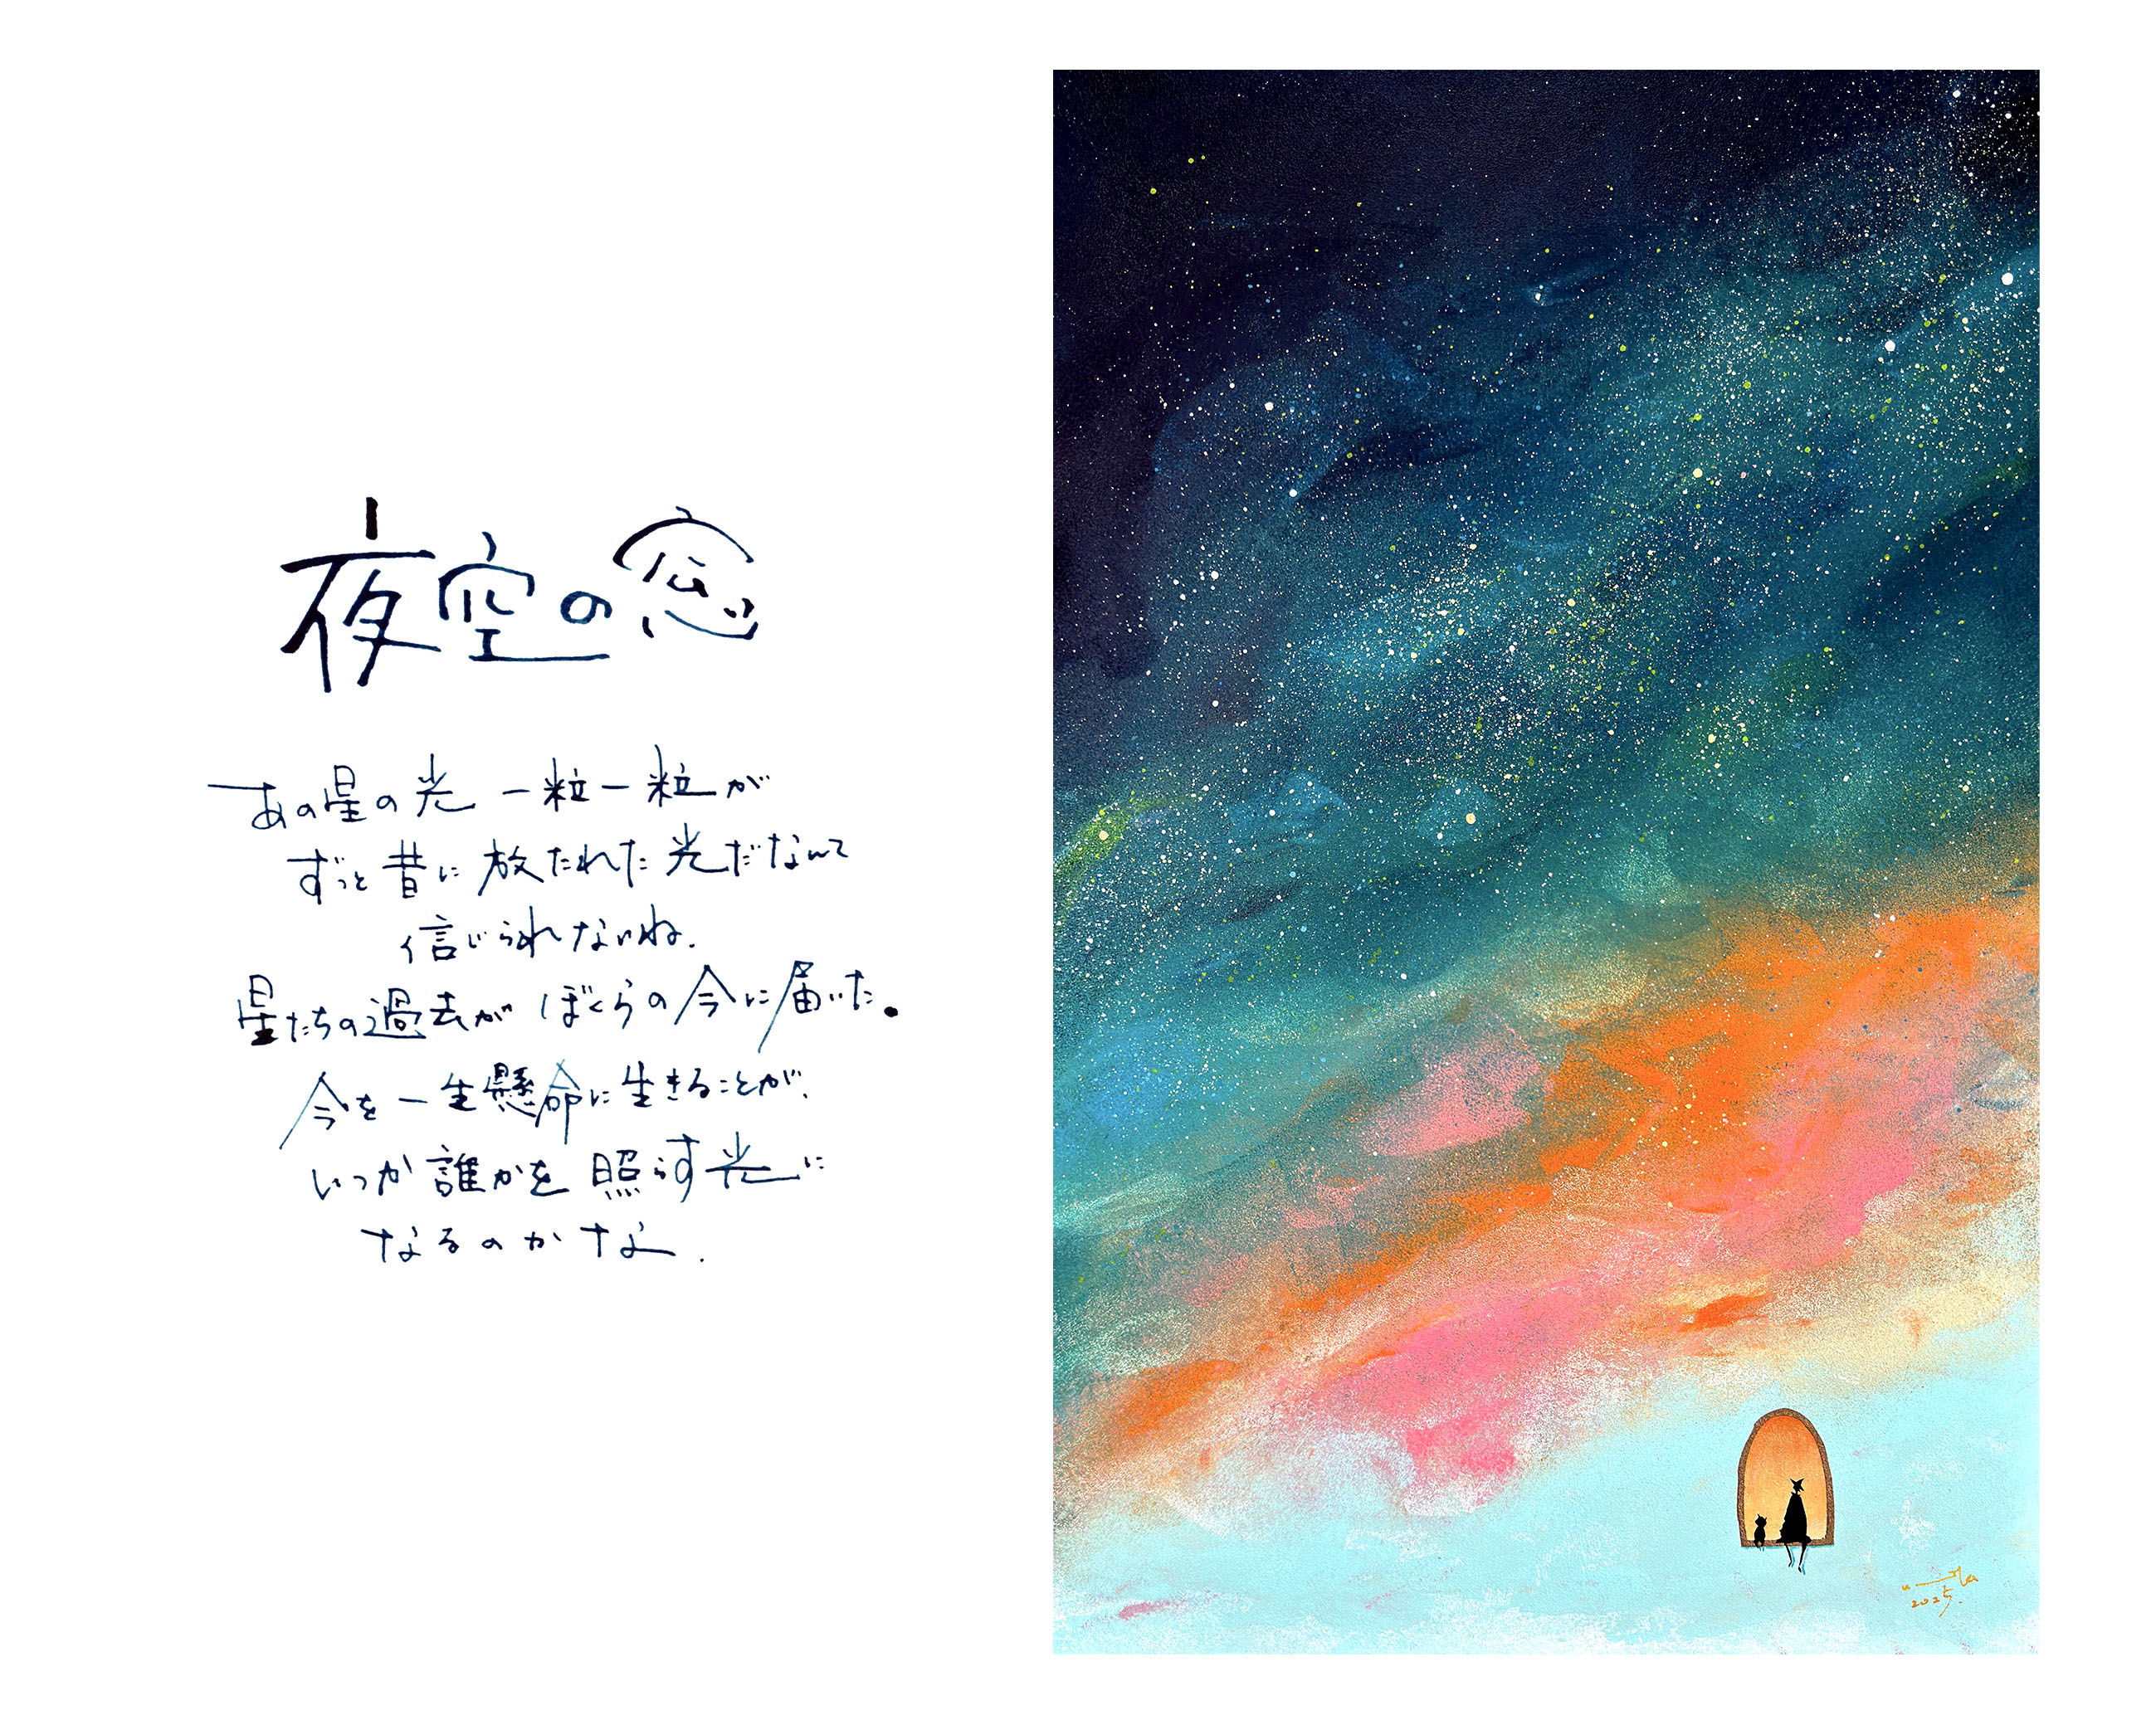 夜空の窓
あの星の光 一粒一粒が
ずっと昔に放たれた光だなんて
信じられないね.
星たちの過去が ぼくらの今に届いた。
今を一生懸命に生きることが、
いつか誰かを照らす光に
なるのかな.
2025.